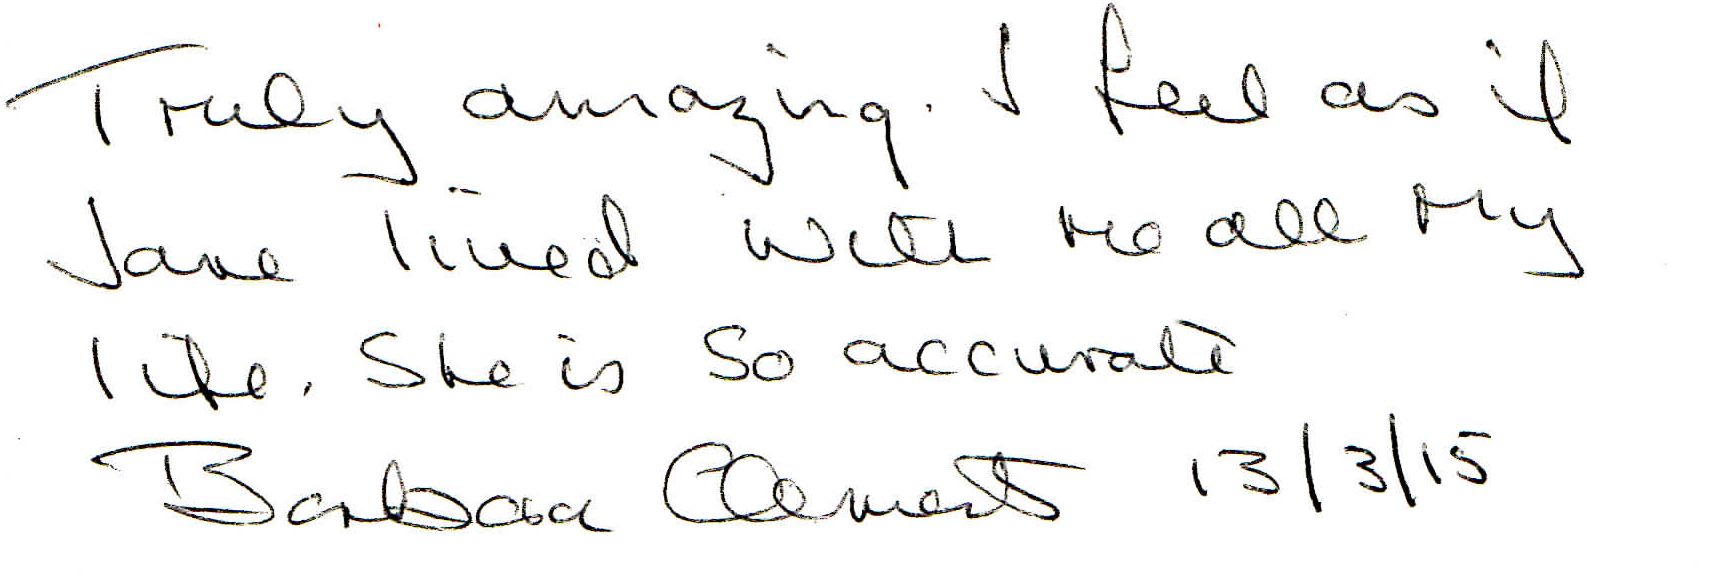 Truly amazing. I feel as if
Jane lived with me all my
life. She is so accurate
Barbara Clements 13/3/15